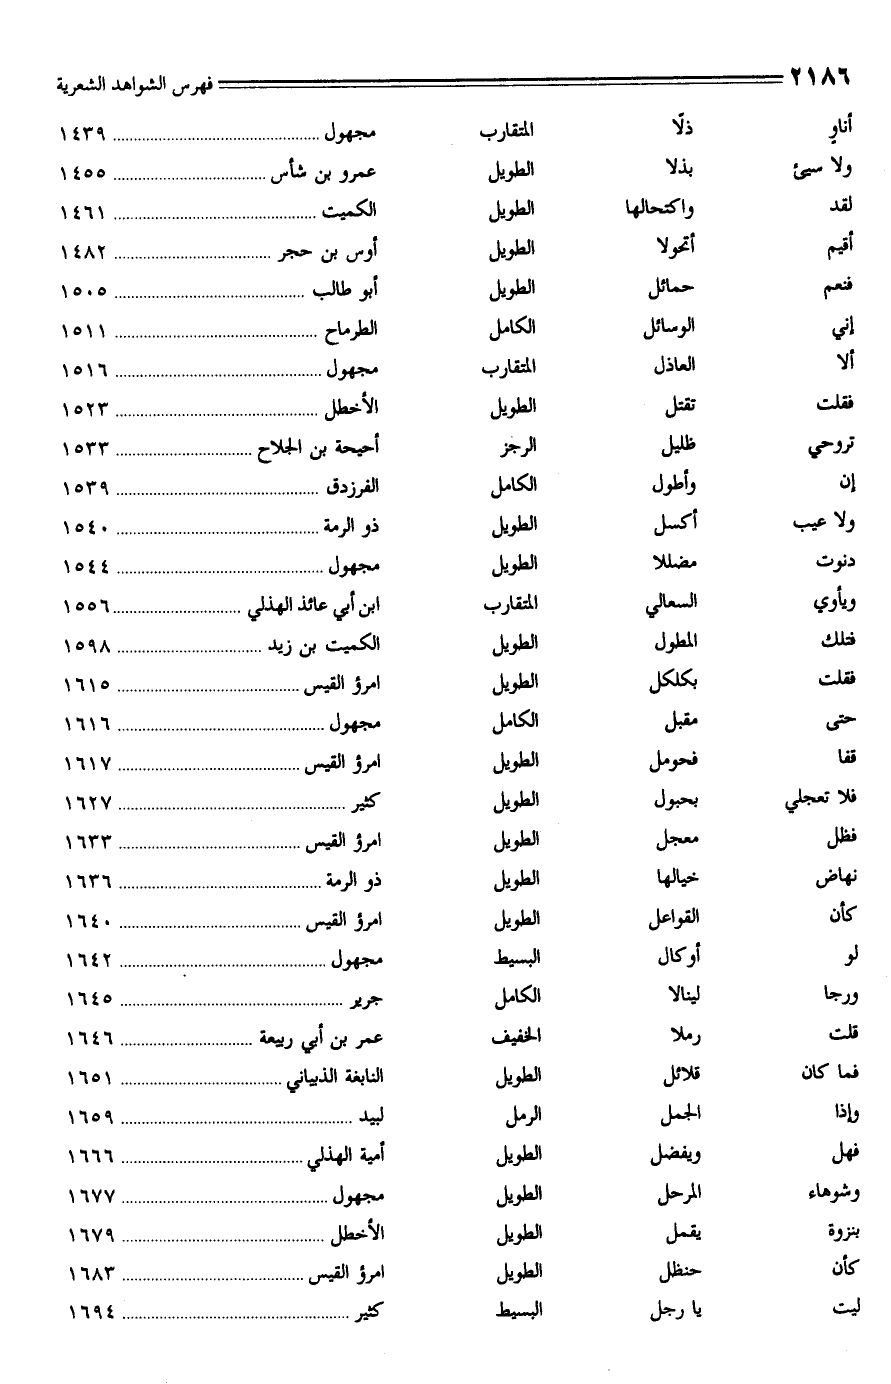 ٢١٨٦ فهرس الشواهد الشعرية
أناوٍ ذلّا المتقارب مجهول ١٤٣٩
ولا سيئ بذلا الطويل عمرو بن شأس ١٤٥٥
لقد واكتحالها الطويل الكميت ١٤٦١
أقيم أتحولا الطويل أوس بن حجر ١٤٨٢
فنعم حمائل الطويل أبو طالب ١٥٠٥
إني الوسائل الكامل الطرماح ١٥١١
ألا العاذل المتقارب مجهول ١٥١٦
فقلت تقتل الطويل الأخطل ١٥٢٣
تروحي ظليل الرجز أحيحة بن الجلاح ١٥٣٣
إن وأطول الكامل الفرزدق ١٥٣٩
ولا عيب أكسل الطويل ذو الرمة ١٥٤٠
دنوت مضللا الطويل مجهول ١٥٤٤
ويأوي السعالي المتقارب ابن أبي عائذ الهذلي ١٥٥٦
فتلك المطول الطويل الكميت بن زيد ١٥٩٨
فقلت بكلكل الطويل امرؤ القيس ١٦١٥
حتى مقبل الكامل مجهول ١٦١٦
قفا فحومل الطويل امرؤ القيس ١٦١٧
فلا تعجلي بحبول الطويل كثير ١٦٢٧
فظل معجل الطويل امرؤ القيس ١٦٣٣
نهاض خيالها الطويل ذو الرمة ١٦٣٦
كأن القواعل الطويل امرؤ القيس ١٦٤٠
لو أوكال البسيط مجهول ١٦٤٢
ورجا لينالا الكامل جرير ١٦٤٥
قلت رملا الخفيف عمر بن أبي ربيعة ١٦٤٦
فما كان قلائل الطويل النابغة الذبياني ١٦٥١
وإذا الجمل الرمل لبيد ١٦٥٩
فهل ويفضل الطويل أمية الهذلي ١٦٦٦
وشوهاء المرحل الطويل مجهول ١٦٧٧
بنزوة يقمل الطويل الأخطل ١٦٧٩
كأن حنظل الطويل امرؤ القيس ١٦٨٣
ليت يا رجل البسيط كثير ١٦٩٤